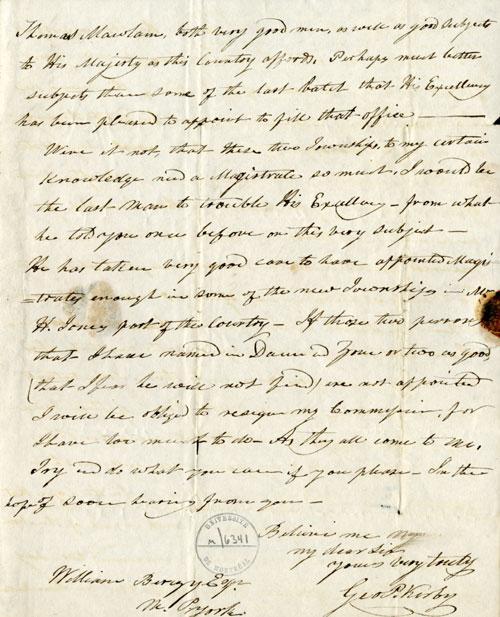 Thomas Mawlam, both very good men, as well as good subjects
to His Majesty as this Country affords, Perhaps much better
subjects than some of the last batch that His Excellency
has been pleased to appoint to fill that office —
Were it not, that these two Townships, to my certain
Knowledge need a Magistrate so much, I would be
the last man to trouble His Excellency – from what
he told you once before on this very subject —
He has taken very good care to have appointed Magi
=trates enough in some of the new Townships in Mr
H. Jones part of the Country – If those two persons
that I have named in
or two as good
(that I fear he will not find) are not appointed
I will be obliged to resign my Commission, for
I have too much to do – As they all come to me,
Try and do what you can if you please – In the
hope of soon hearing from you –
Believe me
my dear Sir
yours very truly
Geo P. Kirby
William Berczy Esqr
M. P. York
UNIVERSITÉ DE MONTRÉAL
6341